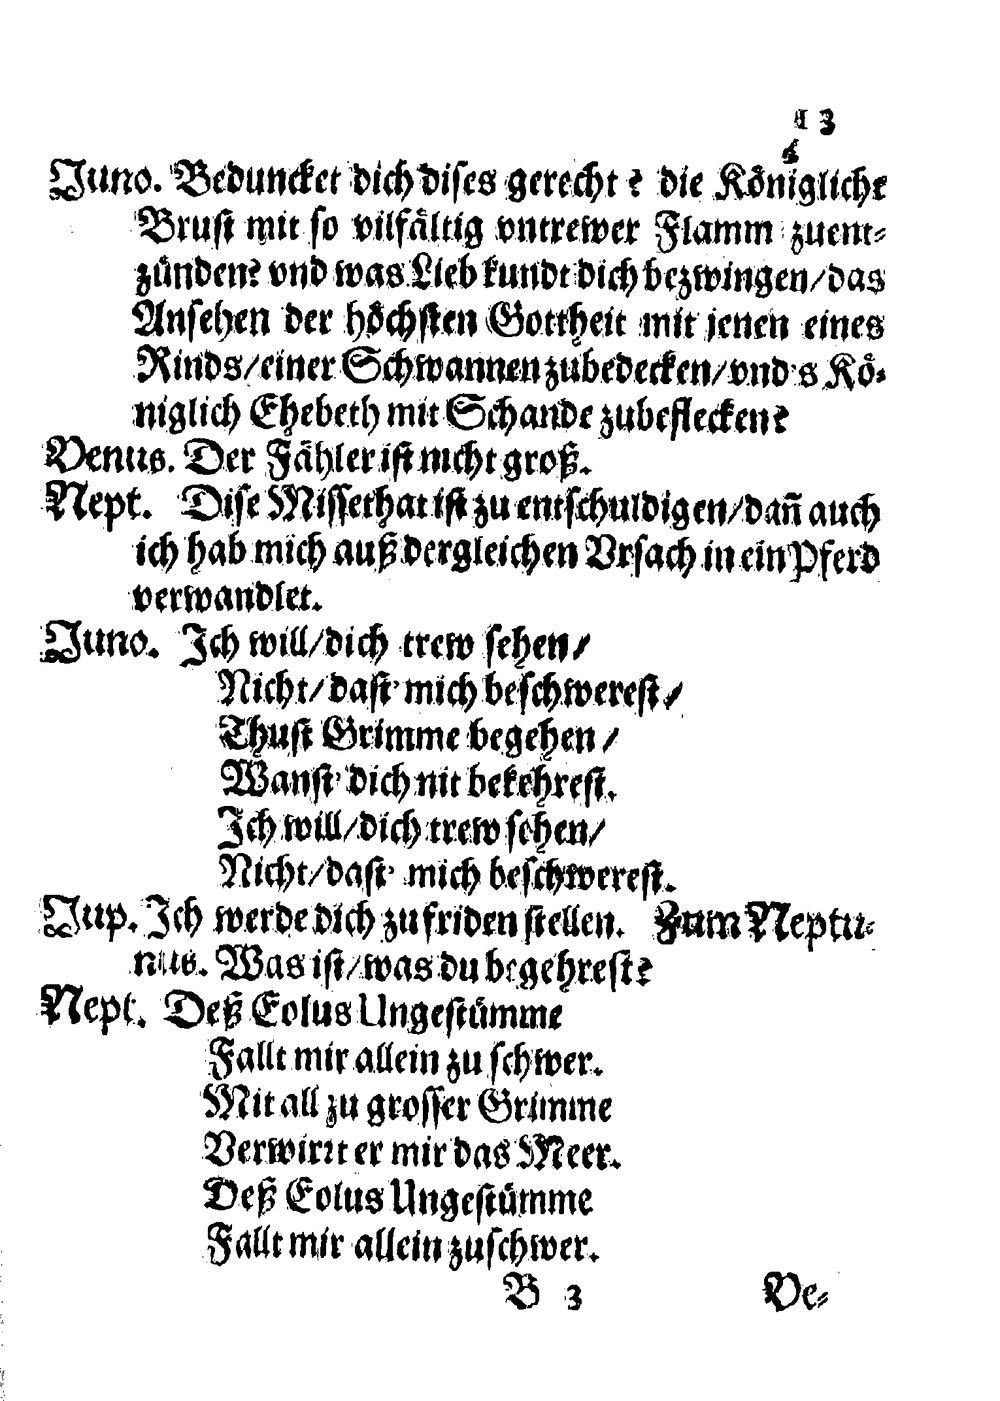 13
Juno. Beduncket dich dises gerecht? die Königliche
Brust mit so vilfältig vntrewer Flamm zuent-
zünden? vnd was Lieb kundt dich bezwingen/das
Ansehen der höchsten Gottheit mit jenen eines
Rinds/einer Schwannen zubedecken/vnd's Kö-
niglich Ehebeth mit Schande zubeflecken?
Venus. Der Fähler ist nicht groß.
Nept. Dise Missethat ist zu entschuldigen/dañ auch
ich hab mich auß dergleichen Vrsach in ein Pferd
verwandlet.
Juno. Ich will/dich trew sehen/
Nicht/dast' mich beschwerest/
Thust Grimme begehen/
Wanst' dich nit bekehrest.
Ich will/dich trew sehen/
Nicht/dast' mich beschwerest.
Jup. Ich werde dich zu friden stellen. Zum Neptu-
nus. Was ist/was du begehrest?
Nept. Deß Eolus Ungestümme
Fallt mir allein zu schwer.
Mit all zu grosser Grimme
Verwirrt er mir das Meer.
Deß Eolus Ungestümme
Fallt mir allein zu schwer.
B 3 Ve-